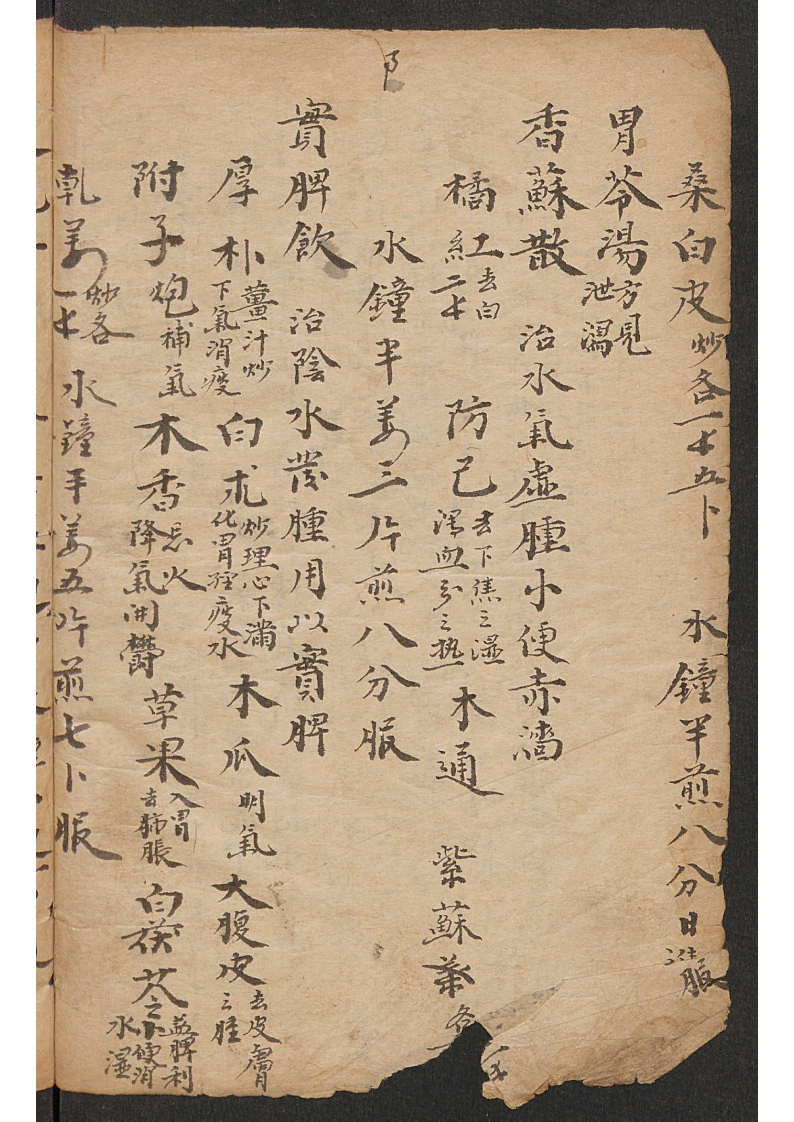 卩
桑白皮炒各一才五卜 水鐘半煎八分日進服
胃苓湯方見泄瀉
香蘇散 治水氣虛腫小便赤澁
橘紅去白二才 防己去下焦之湿瀉血分之热 木通 紫蘇葉各一才
水鐘半姜三片煎八分服
實脾飲 治陰水發腫用以實脾
厚朴薑汁炒下氣消痰 白朮炒理心下滿化胃經痰水 木瓜明氣 大腹皮去皮膚之腫
附子炮補氣 木香忌火降氣開欝 草果入胃去肺脹 白茯苓益脾利小便消水湿
乹姜炒各一才 水鐘半姜五片煎七卜服